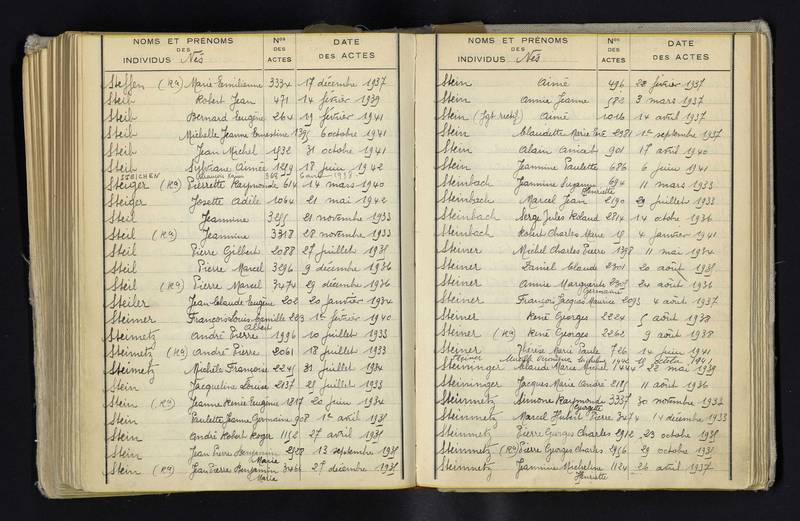 NOMS ET PRÉNOMS
DES
INDIVIDUS Nés
Nos
DES
ACTES
DATE
DES ACTES
Steffen (Ra) Marie Emilienne 3334 17 décembre 1937
Steib Robert Jean 471 14 février 1939
Steib Bernard Eugène 264 19 février 1941
Steib Michelle Jeanne Ernestine 1395 6 octobre 1941
Steib Jean Michel 1932 31 octobre 1941
Steib Sylviane Aimée 1219 18 juin 1942
STEICHEN 6 avr. 1938
Steiger (Ra) Pierrette Raymonde 614 14 mars 1940
Steiger Josette Adèle 1064 21 mai 1942
Steil Jeannine 3255 21 novembre 1933
Steil (Ra) Jeannine 3318 28 novembre 1933
Steil Pierre Gilbert 2088 27 juillet 1935
Steil Pierre Marcel 3296 9 décembre 1936
Steil (Ra) Pierre Marcel 3474 29 décembre 1936
Steiler Jean Claude Eugène 202 20 janvier 1934
Steimer François Louis Camille 203 1er février 1940
Albert
Steimetz André Pierre 1996 10 juillet 1933
Steimetz (Ra) André Pierre 2061 18 juillet 1933
Steimetz Michèle Françoise 2245 31 juillet 1934
Stein Jacqueline Louise 2137 29 juillet 1933
Stein (Ra) Jeanne Renée Eugénie 1817 20 juin 1934
Stein Paulette Jeanne Germaine 908 1er avril 1935
Stein André Robert Roger 1152 27 avril 1935
Stein Jean Pierre Benjamin 2528 13 septembre 1935
Marie
Stein (Ra) Jean Pierre Benjamin 3465 27 décembre 1935
Marie
NOMS ET PRÉNOMS
DES
INDIVIDUS Nés
Nos
DES
ACTES
DATE
DES ACTES
Stein Aimé 496 23 février 1937
Stein Annie Jeanne 582 3 mars 1937
Stein (Jgt rectif) Aimé 1016 14 avril 1937
Stein Claudette Marie 2381 1er septembre 1937
Stein Alain Anicet 901 17 avril 1940
Stein Jeannine Paulette 686 6 juin 1941
Steinbach Jeannine Suzanne 694 11 mars 1933
Henriette
Steinbach Marcel Jean 2190 29 juillet 1933
Steinbach Serge Jules Roland 2814 14 octobre 1936
Steinbach Robert Charles Marie 18 4 janvier 1941
Steiner Michel Charles Pierre 1398 11 mai 1934
Steiner Daniel Claude 2301 20 août 1935
Steiner Annie Marguerite 2305 24 août 1936
Germaine
Steiner François Jacques Maurice 2093 4 août 1937
Steiner René Georges 2224 5 août 1938
Steiner (Ra) René Georges 2262 9 août 1938
Steiner Thérèse Marie Paule 726 14 juin 1941
octobre 1941
Steininger Claude Marie Michel 1444 22 mai 1939
Steininger Jacques Marie André 2185 11 août 1936
Steinmetz Simone Raymonde 3337 30 novembre 1932
Georgette
Steinmetz Marcel Hubert Pierre 3474 14 décembre 1933
Steinmetz Pierre Georges Charles 2912 23 octobre 1935
Steinmetz (Ra) Pierre Georges Charles 2956 29 octobre 1935
Steinmetz Jeannine Micheline 1124 26 avril 1937
Henriette